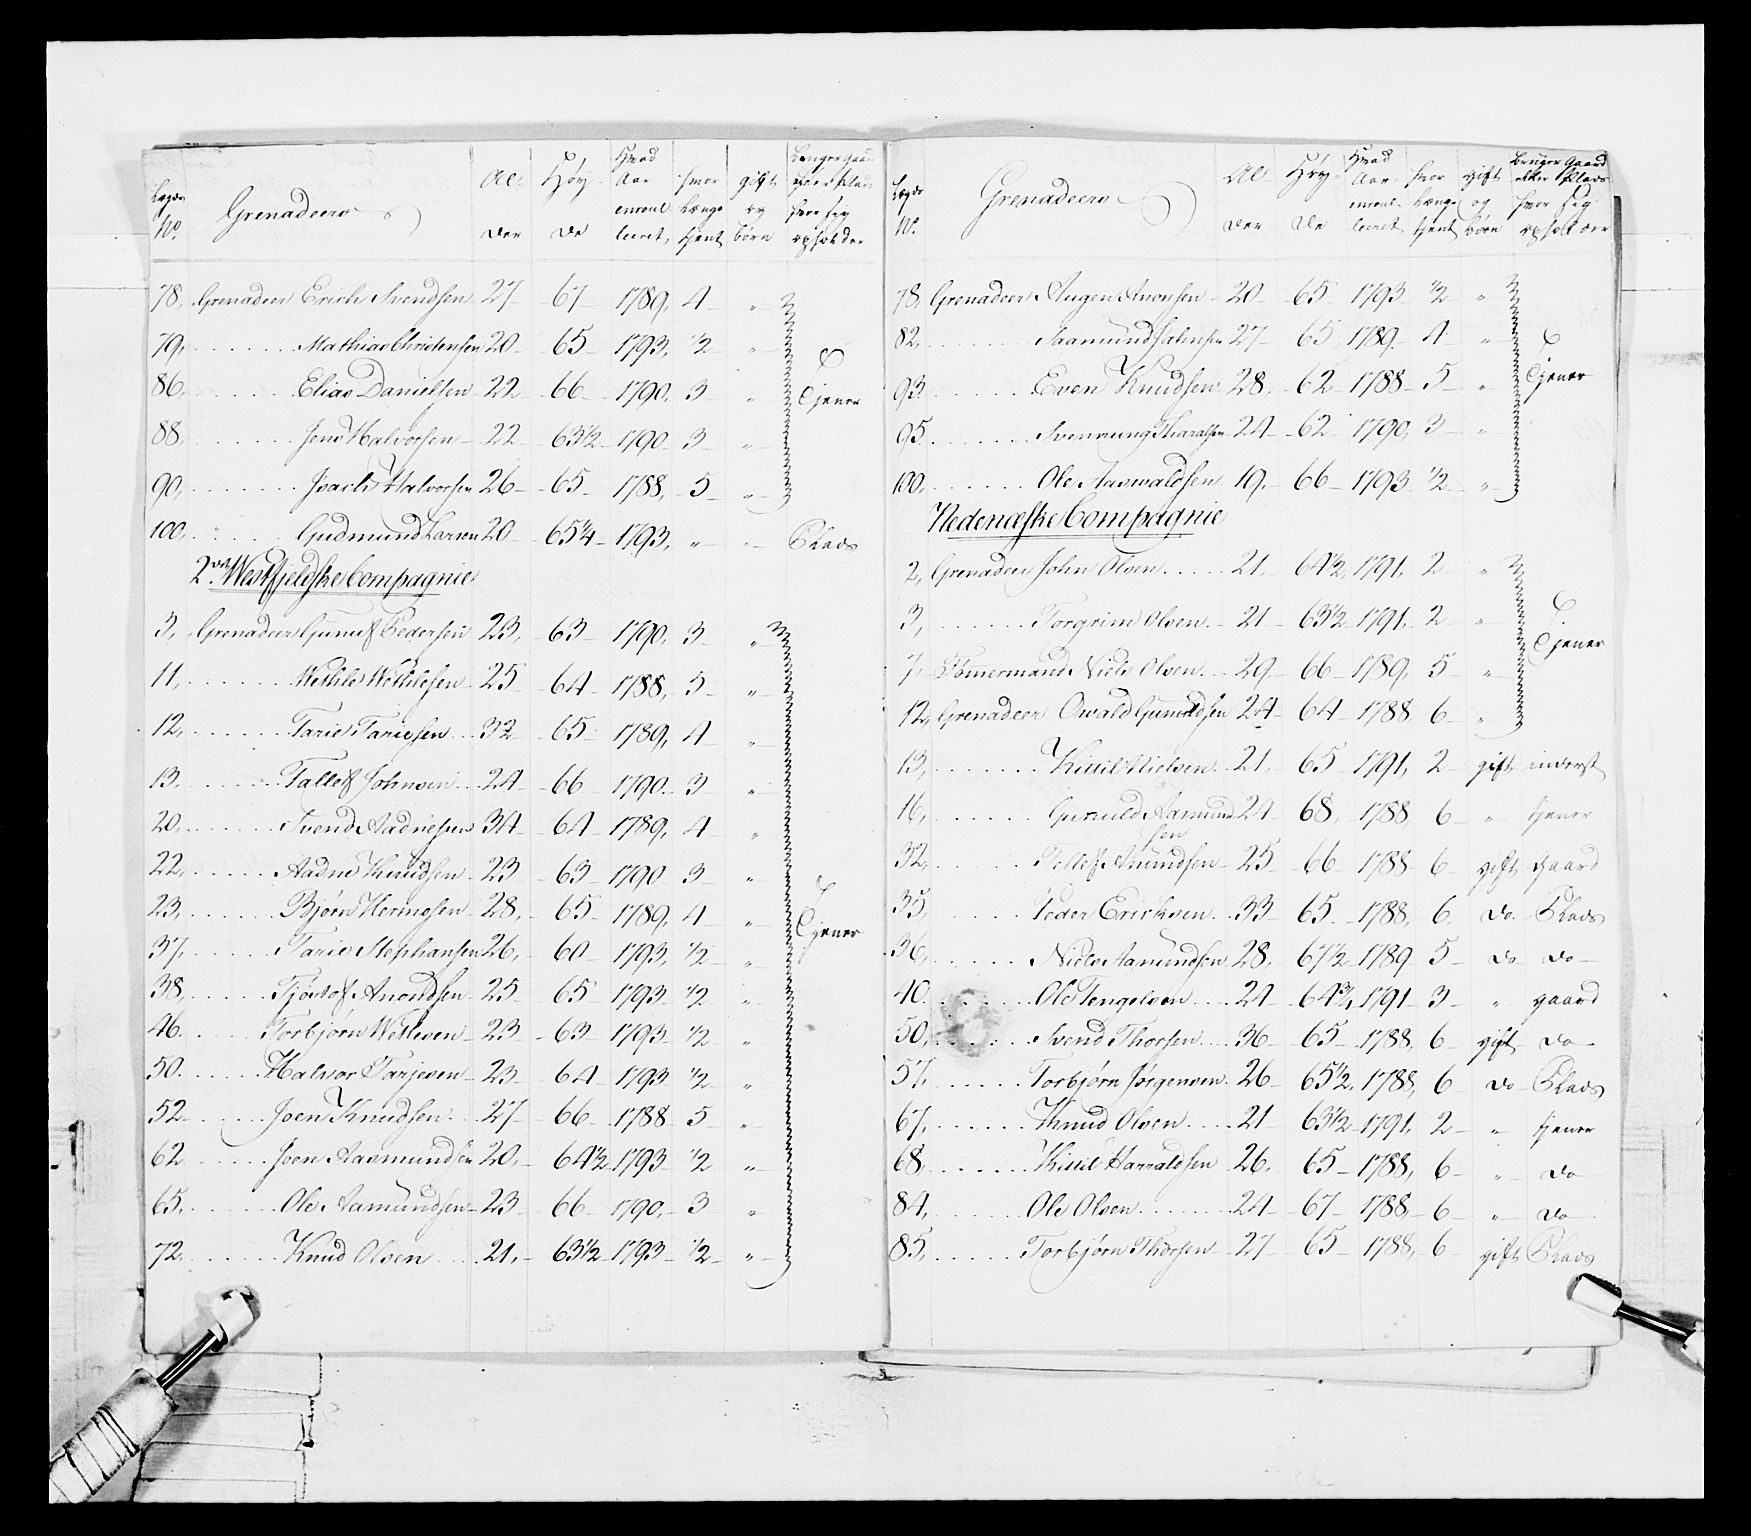 Lægds No. Grenadeers Alder Høyde Hvad Aar enroulleret, hvor Længe tjent gift og børn Bruger Gaard eller Plads hvor sig opholder
78, Grenadeer Erich Svendsen 27 67 1789, 4 "
79, Mathias Christensen 20 65 1793, ½ "
86, Elias Danielsen 22 66 1790, 3 " Tjener
88, Jens Halvorsen 22 63½ 1790 3 "
90, Isach Halvorsen 26 65 1788, 5 "
100, Gudmund Larsen 20 65¼ 1793, " " Plads
2det Westfjeldske Compagnie
3, Grenadeer Gunulf Pedersen 23, 63 1790, 3 "
11, Wethle Wethlesen 25 64 1788, 5 "
12, Tarie Tariesen 32 65 1789, 4 "
13, Tallef Johnsen 24 66 1790 3 "
20, Svend Aadnesen 34 64 1789, 4 "
22, Aadne Knudsen 23 63 1790 3 "
23, Bjørn Hermosen 28, 65 1789, 4 " Tjener
37, Tarie Stephansen 26, 60 1793, ½ "
38, Tjøstof Anondsen 25 65 1793 ½ "
46. Torbjørn Wetlesen 23 63 1793 ½ "
50. Halvor Tarjesen 23 64 1793 ½ "
52 Joen Knudsen 27 66 1788 5 "
62 Joen Aasmundsen 20, 64½ 1793 ½ "
65, Ole Aamundsen 23 66 1790, 3 "
72, Knud Olsen 21, 63½ 1793 ½ "
Lægds No. Grenadeers Alder Høyde Hvad Aar enroulleret hvor Længe tjent gift og børn Bruger Gaard eller Plads hvor sig opholder
78, Grenadeer Augen Anonsen 20 65 1793 ½ "
82, Saamund 27 65 1789 4 "
93. Even Knudsen 28, 62 1788 5 " Tjener
95. Svennung Tharalsen 24 62 1790, 3 "
100, Ole Aanwaldsen 19. 66 1793 ½ "
Nedenæske Compagnie
2, Grenadeer John Olsen 21. 64½, 1791, 2 "
3, Torgrim Olsen 21 63½ 1791, 2 "
7, Tømermand Niels Olsen 29 66 1789, 5 " Tjener
12, Grenadeer Oswald Gunuldsen 24 64 1788 6 "
13, Kittil Nielsen 21, 65 1791, 2 gift inderst
16, Gunuld Aamundsen 24 68, 1788 6 " tjener
32, Tellef Anundsen 25 66 1788 6 gift gaard
35, Peder Ericksen 33 65 1788, 6 do Plads
36, Niels Aamundsen 28, 67½ 1789 5 do do
40. Ole Tengelsen 24 64¾, 1791 3 " gaard
50, Svend Thorsen 36 65 1788, 6 gift do
57, Torbjørn Jørgensen 26 65½, 1788, 6 do Plads
67, Knud Olsen 21 63½ 1791, 2 " tjener
68, Kittil Harralsen 26. 65 1788, 6 " do
84, Ole Olsen 24 67 1788 6 " do
85, Torbjørn Thorsen 27 65 1788, 6 gift Plads